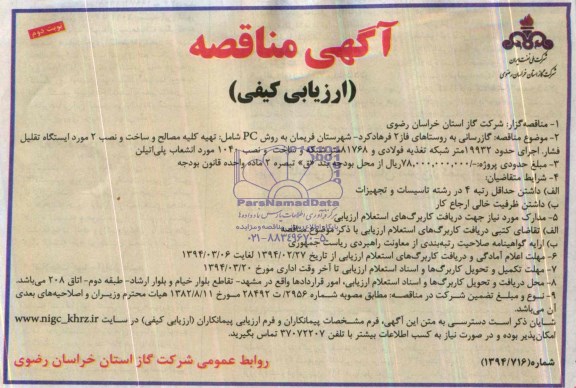 نوبت دوم
آگهی مناقصه
(ارزیابی کیفی)
شرکت ملی گاز ایران
شرکت گاز استان خراسان رضوی
۱- مناقصه‌گزار: شرکت گاز استان خراسان رضوی
۲- موضوع مناقصه: گازرسانی به روستاهای فاز۲ فرهادکرد- شهرستان فریمان به روش PC شامل: تهیه کلیه مصالح و ساخت و نصب ۲ مورد ایستگاه تقلیل
فشار، اجرای حدود ۱۹۹۳۲متر شبکه تغذیه فولادی و ۸۱۷۶۸ متر شبکه و ساخت و نصب ۱۰۴۰ مورد انشعاب پلی‌اتیلن
۳- مبلغ حدودی پروژه: -/۷۸,۰۰۰,۰۰۰,۰۰۰ریال از محل بودجه بند «ق» تبصره ۲ ماده واحده قانون بودجه
۴- شرایط متقاضیان:
الف) داشتن حداقل رتبه ۴ در رشته تاسیسات و تجهیزات
ب) داشتن ظرفیت خالی ارجاع کار
۵- مدارک مورد نیاز جهت دریافت کاربرگ‌های استعلام ارزیابی:
الف) تقاضای کتبی دریافت کاربرگ‌های استعلام ارزیابی با ذکر موضوع مناقصه
ب) ارایه گواهینامه صلاحیت رتبه‌بندی از معاونت راهبردی ریاست جمهوری
۶- مهلت اعلام آمادگی و دریافت کاربرگ‌های استعلام ارزیابی از تاریخ ۱۳۹۴/۰۲/۲۷ لغایت ۱۳۹۴/۰۳/۰۶
۷- مهلت تکمیل و تحویل کاربرگ‌ها و اسناد استعلام ارزیابی تا آخر وقت اداری مورخ ۱۳۹۴/۰۳/۲۰
۸- محل دریافت و تحویل کاربرگ‌ها و اسناد استعلام ارزیابی، امور قراردادها واقع در مشهد- تقاطع بلوار خیام و بلوار ارشاد- طبقه دوم- اتاق ۲۰۸ می‌باشد.
۹- نوع و مبلغ تضمین شرکت در مناقصه: مطابق مصوبه شماره ۲۹۵۶/ت ۲۸۴۹۲ مورخ ۱۳۸۲/۸/۱۱ هیات محترم وزیران و اصلاحیه‌های بعدی
آن می‌باشد.
شایان ذکر است دسترسی به متن این آگهی، فرم مشخصات پیمانکاران و فرم ارزیابی پیمانکاران (ارزیابی کیفی) در سایت www.nigc_khrz.ir
امکان‌پذیر بوده و در صورت نیاز به کسب اطلاعات بیشتر با تلفن ۳۷۰۷۲۲۰۷ تماس بگیرید.
شماره(۱۳۹۴/۷۱۶)
روابط عمومی شرکت گاز استان خراسان رضوی
ParsNamadData
۰۲۱-۸۸۳۴۹۶۷۰-۵